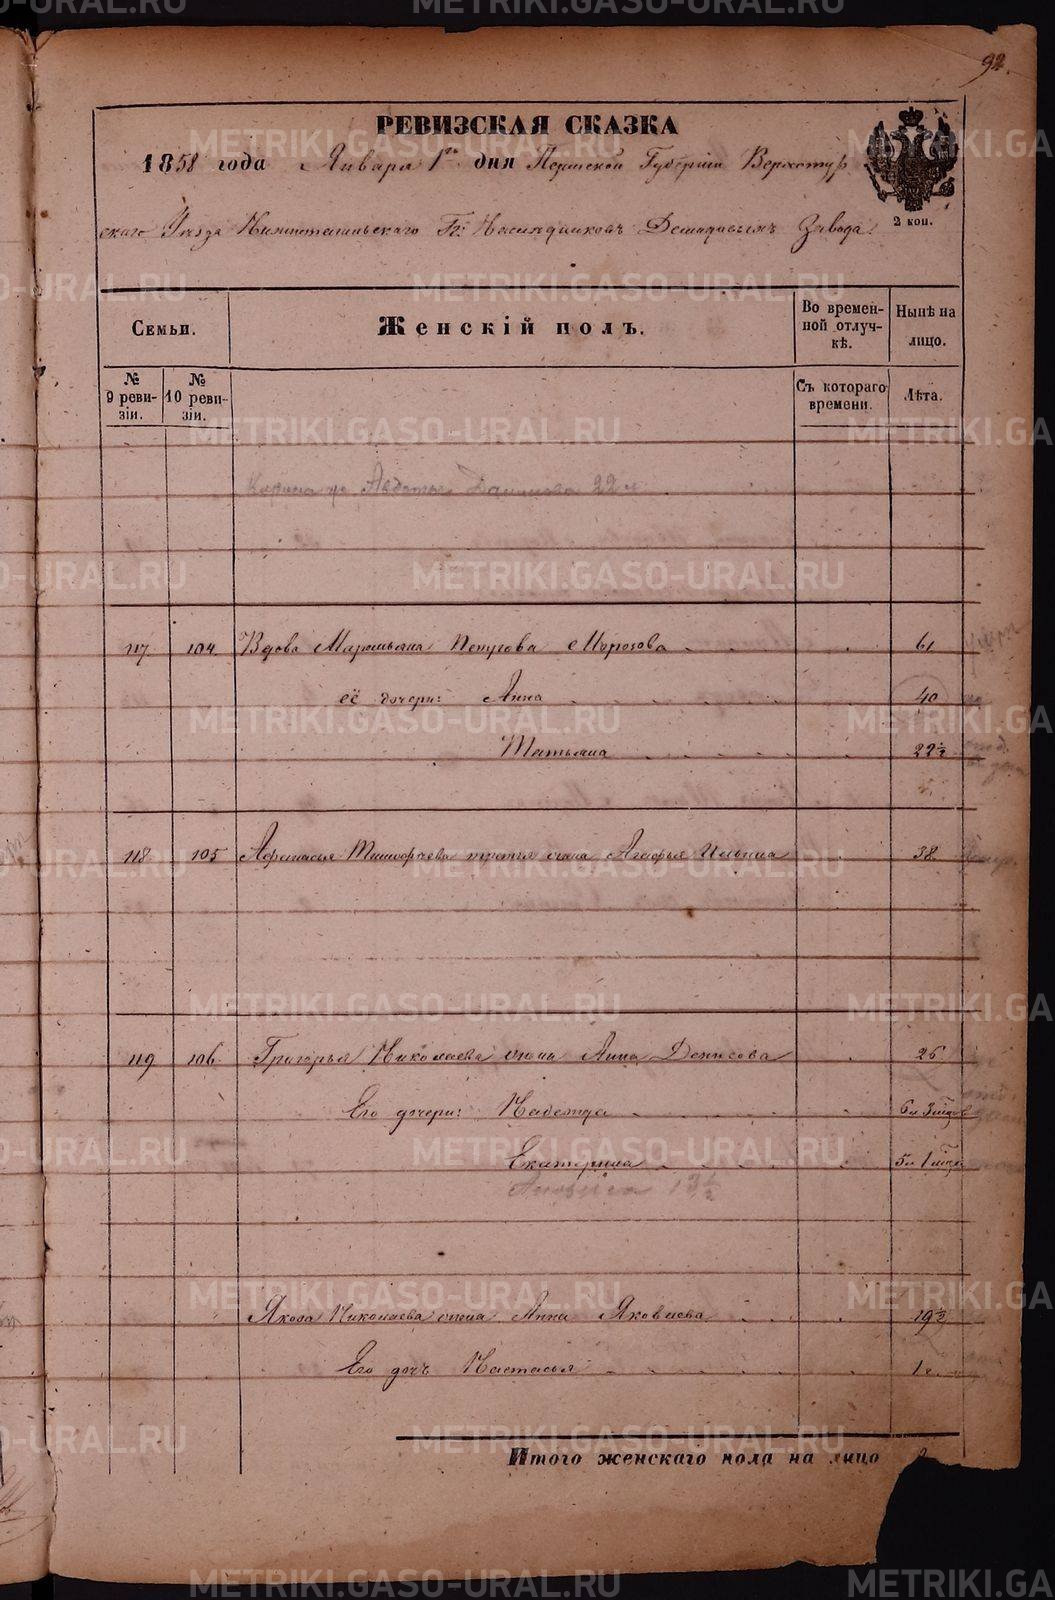 92.
РЕВИЗСКАЯ СКАЗКА
1858 года Января 1го дня Пермской Губернiи Верхотур
скаго Уезда Нижнетагильскаго Гг: Наследниковъ Демидовыхъ Завода
2 коп.
Семьи.
Женскiй полъ.
Во времен-
ной отлуч-
кѣ.
Нынѣ на
лицо.
№
9 реви-
зiи.
№
10 реви-
зiи.
Съ котораго
времени.
Лѣта.
Авдотья 22
117. 104. Вдова Маремьяна Морозова 61
её дочери: Анна 40
Татьяна 22½
118. 105 Афанасья Тимофеева третья жена Агафья Ильина 38
119 106. Григорья Николаева жена Анна Денисова 26
Его дочери: Надежда 6л 3мцов
Екатерина 5л 1мца
13½
Якова Николаева жена Анна Яковлева 19½
Его дочь Настасья 1г.
Итого женскаго пола на лицо
METRIKI.GASO-URAL.RU